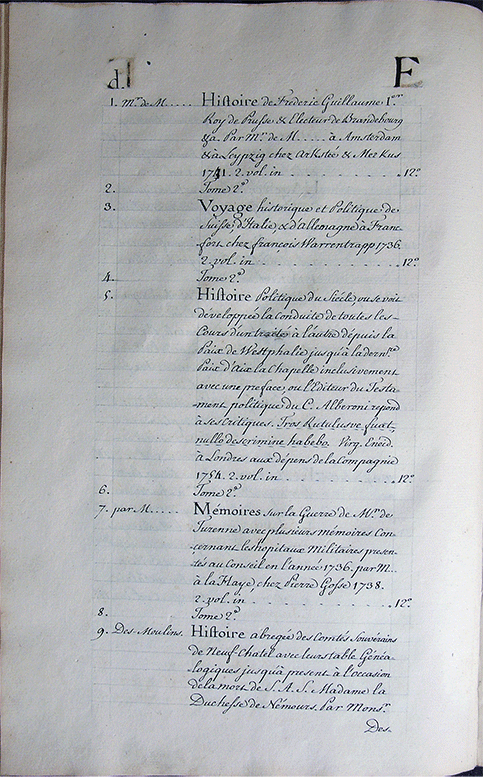 d. E
1. Mr. de M..... Histoire de Frederic Guillaume I.er
Roy de Prusse & Electeur de Brandebourg
&a. Par Mr. de M..... à Amsterdam
& a Leypzig chez Arkstée & Merkus
1741. 2. vol. in - - - - - 12°
2. Tome 2.d
3. Voyage historique et Politique de
Suisse, d'Italie, & d'Allemagne à Franc-
fort chez françois Warrentrapp 1736.
2. vol. in - - - - - 12°
4. Tome 2.d
5. Histoire Politique du Siécle, ou se voit
développée la conduite de toutes les-
Cours d'un traité à l'autre dépuis la
Paix de Westphalie jusqu'à la dern.re
Paix d'Aix la Chapelle inclusivement
avec une preface, ou l'Editeur du Testa-
ment politique du C. Alberoni repond
à ses Critiques. Tros Rutulusve fuat
nullo descrimine habebo. Virg. Eneid.
à Londres aux dépens de la Compagnie
1754. 2. vol. in - - - - - 12°
6. Tome 2.d
7. par M..... Mémoires sur la Guerre de Mr. de
Turenne avec plusieurs mémoires Con-
cernant les hopitaux Militaires presen-
tés au Conseil en l'année 1736. par M...
à la Haye, chez Pierre Gosse 1738.
2. vol. in - - - - - 12°
8. Tome 2.d
9. Des-Moulins. Histoire abregée des Comtés Souvérains
de Neuf-Chatel avec leurs table Généa-
logiques jusqu'à présent à l'occasion
de la mort de S. A. S. Madame la
Duchesse de Némours. Par Monsr.
Des-